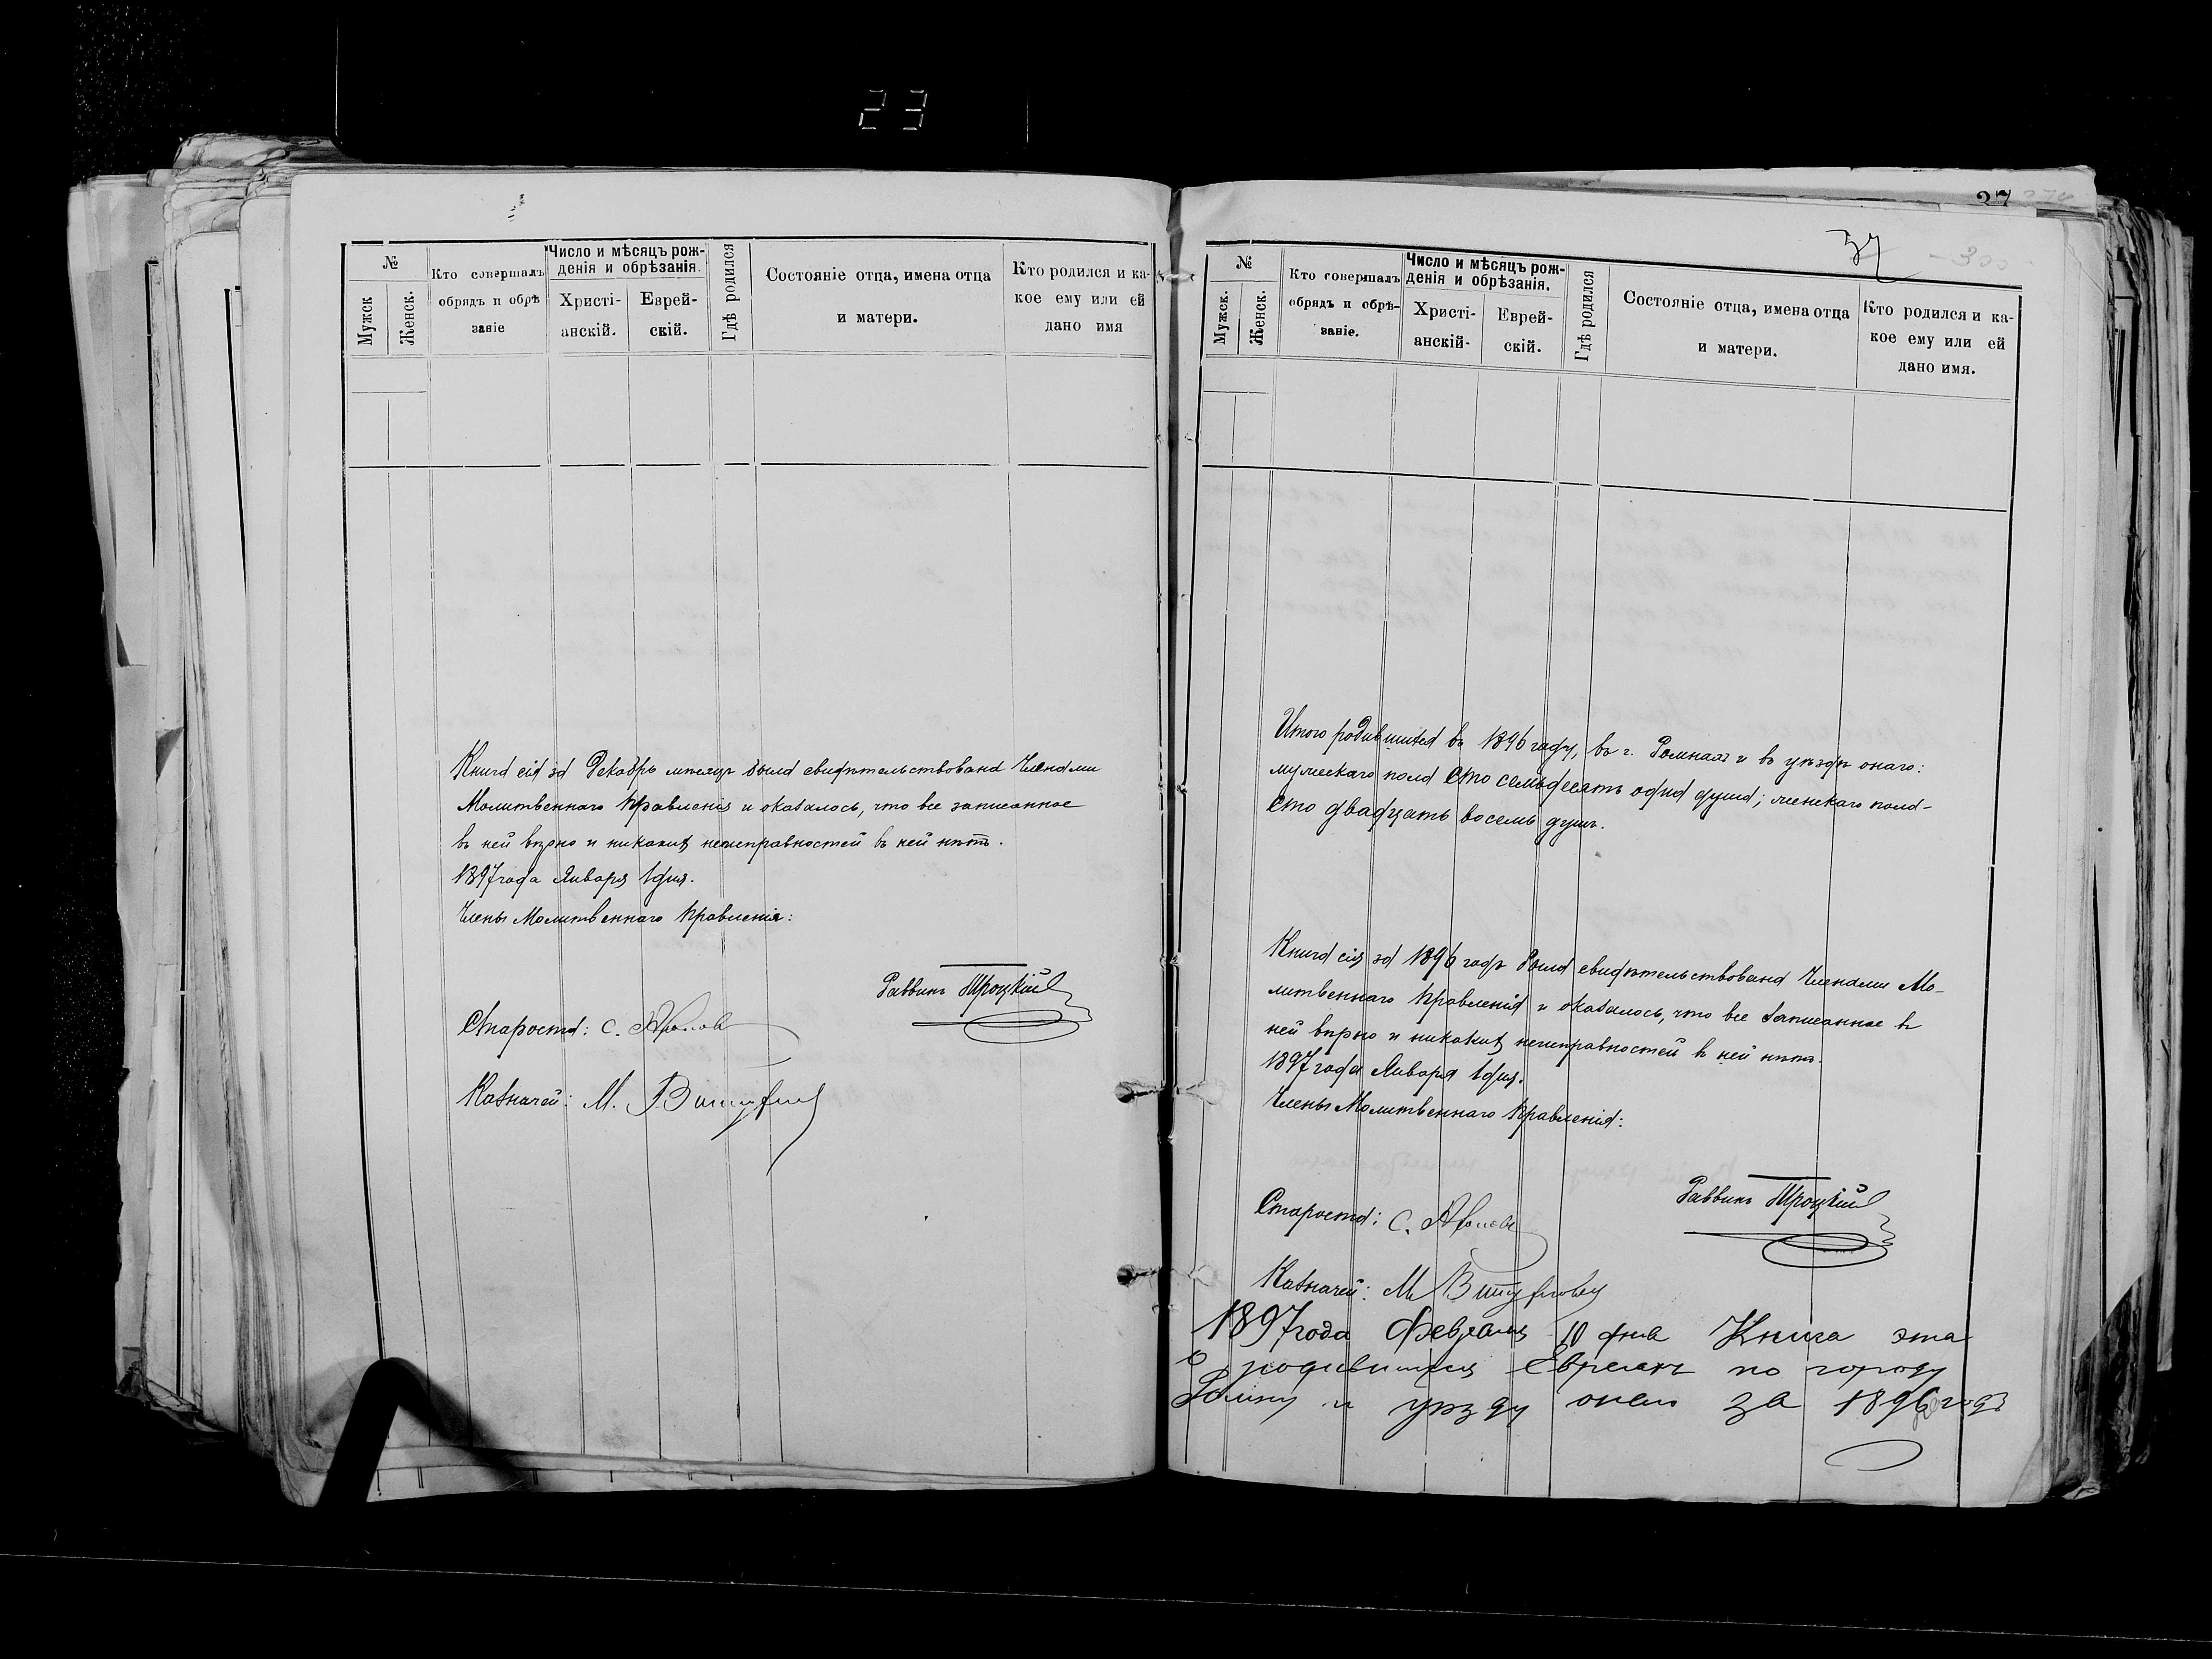 23
№
Мужск
Женск.
Кто совершалъ
обрядъ и обрѣ
заніе
Число и мѣсяцъ рож-
денія и обрѣзанія.
Христі-
анскій.
Еврей-
скій.
Гдѣ родился
Состояніе отца, имена отца
и матери.
Кто родился и ка-
кое ему или ей
дано имя
Книга сія за Декабрь мѣсяцъ была свидѣтельствована Членами
Молитвеннаго Правленія и оказалось, что все записанное
въ ней вѣрно и никакихъ неисправностей въ ней нѣтъ.
1897 года Января 1 дня.
Члены Молитвеннаго Правленія:
Раввинъ Троцкій
Староста: С.
Казначей: М.
37
37
300
№
Мужск.
Женск.
Кто совершалъ
обрядъ и обрѣ-
заніе.
Число и мѣсяцъ рож-
денія и обрѣзанія.
Христі-
анскій-
Еврей-
скій.
Гдѣ родился
Состояніе отца, имена отца
и матери.
Кто родился и ка-
кое ему или ей
дано имя.
Итого родившихся въ 1896 году, въ г. Ромнахъ и въ уѣздѣ онаго:
мужескаго пола сто семьдесятъ одна душа; женскаго пола-
сто двадцать восемь душъ.
Книга сія за 1896 годъ была свидѣтельствована Членами Мо-
литвеннаго Правленія и оказалось, что все записанное въ
ней вѣрно и никакихъ неисправностей въ ней нѣтъ.
1897 года Января 1 дня.
Члены Молитвеннаго Правленія:
Раввинъ Троцкій
Староста: С.
Казначей: М
1897 года Февраля 10 дня Книга эта
о родившихся Евреяхъ по городу
Ромну и уѣзду онаго за 1896 годъ